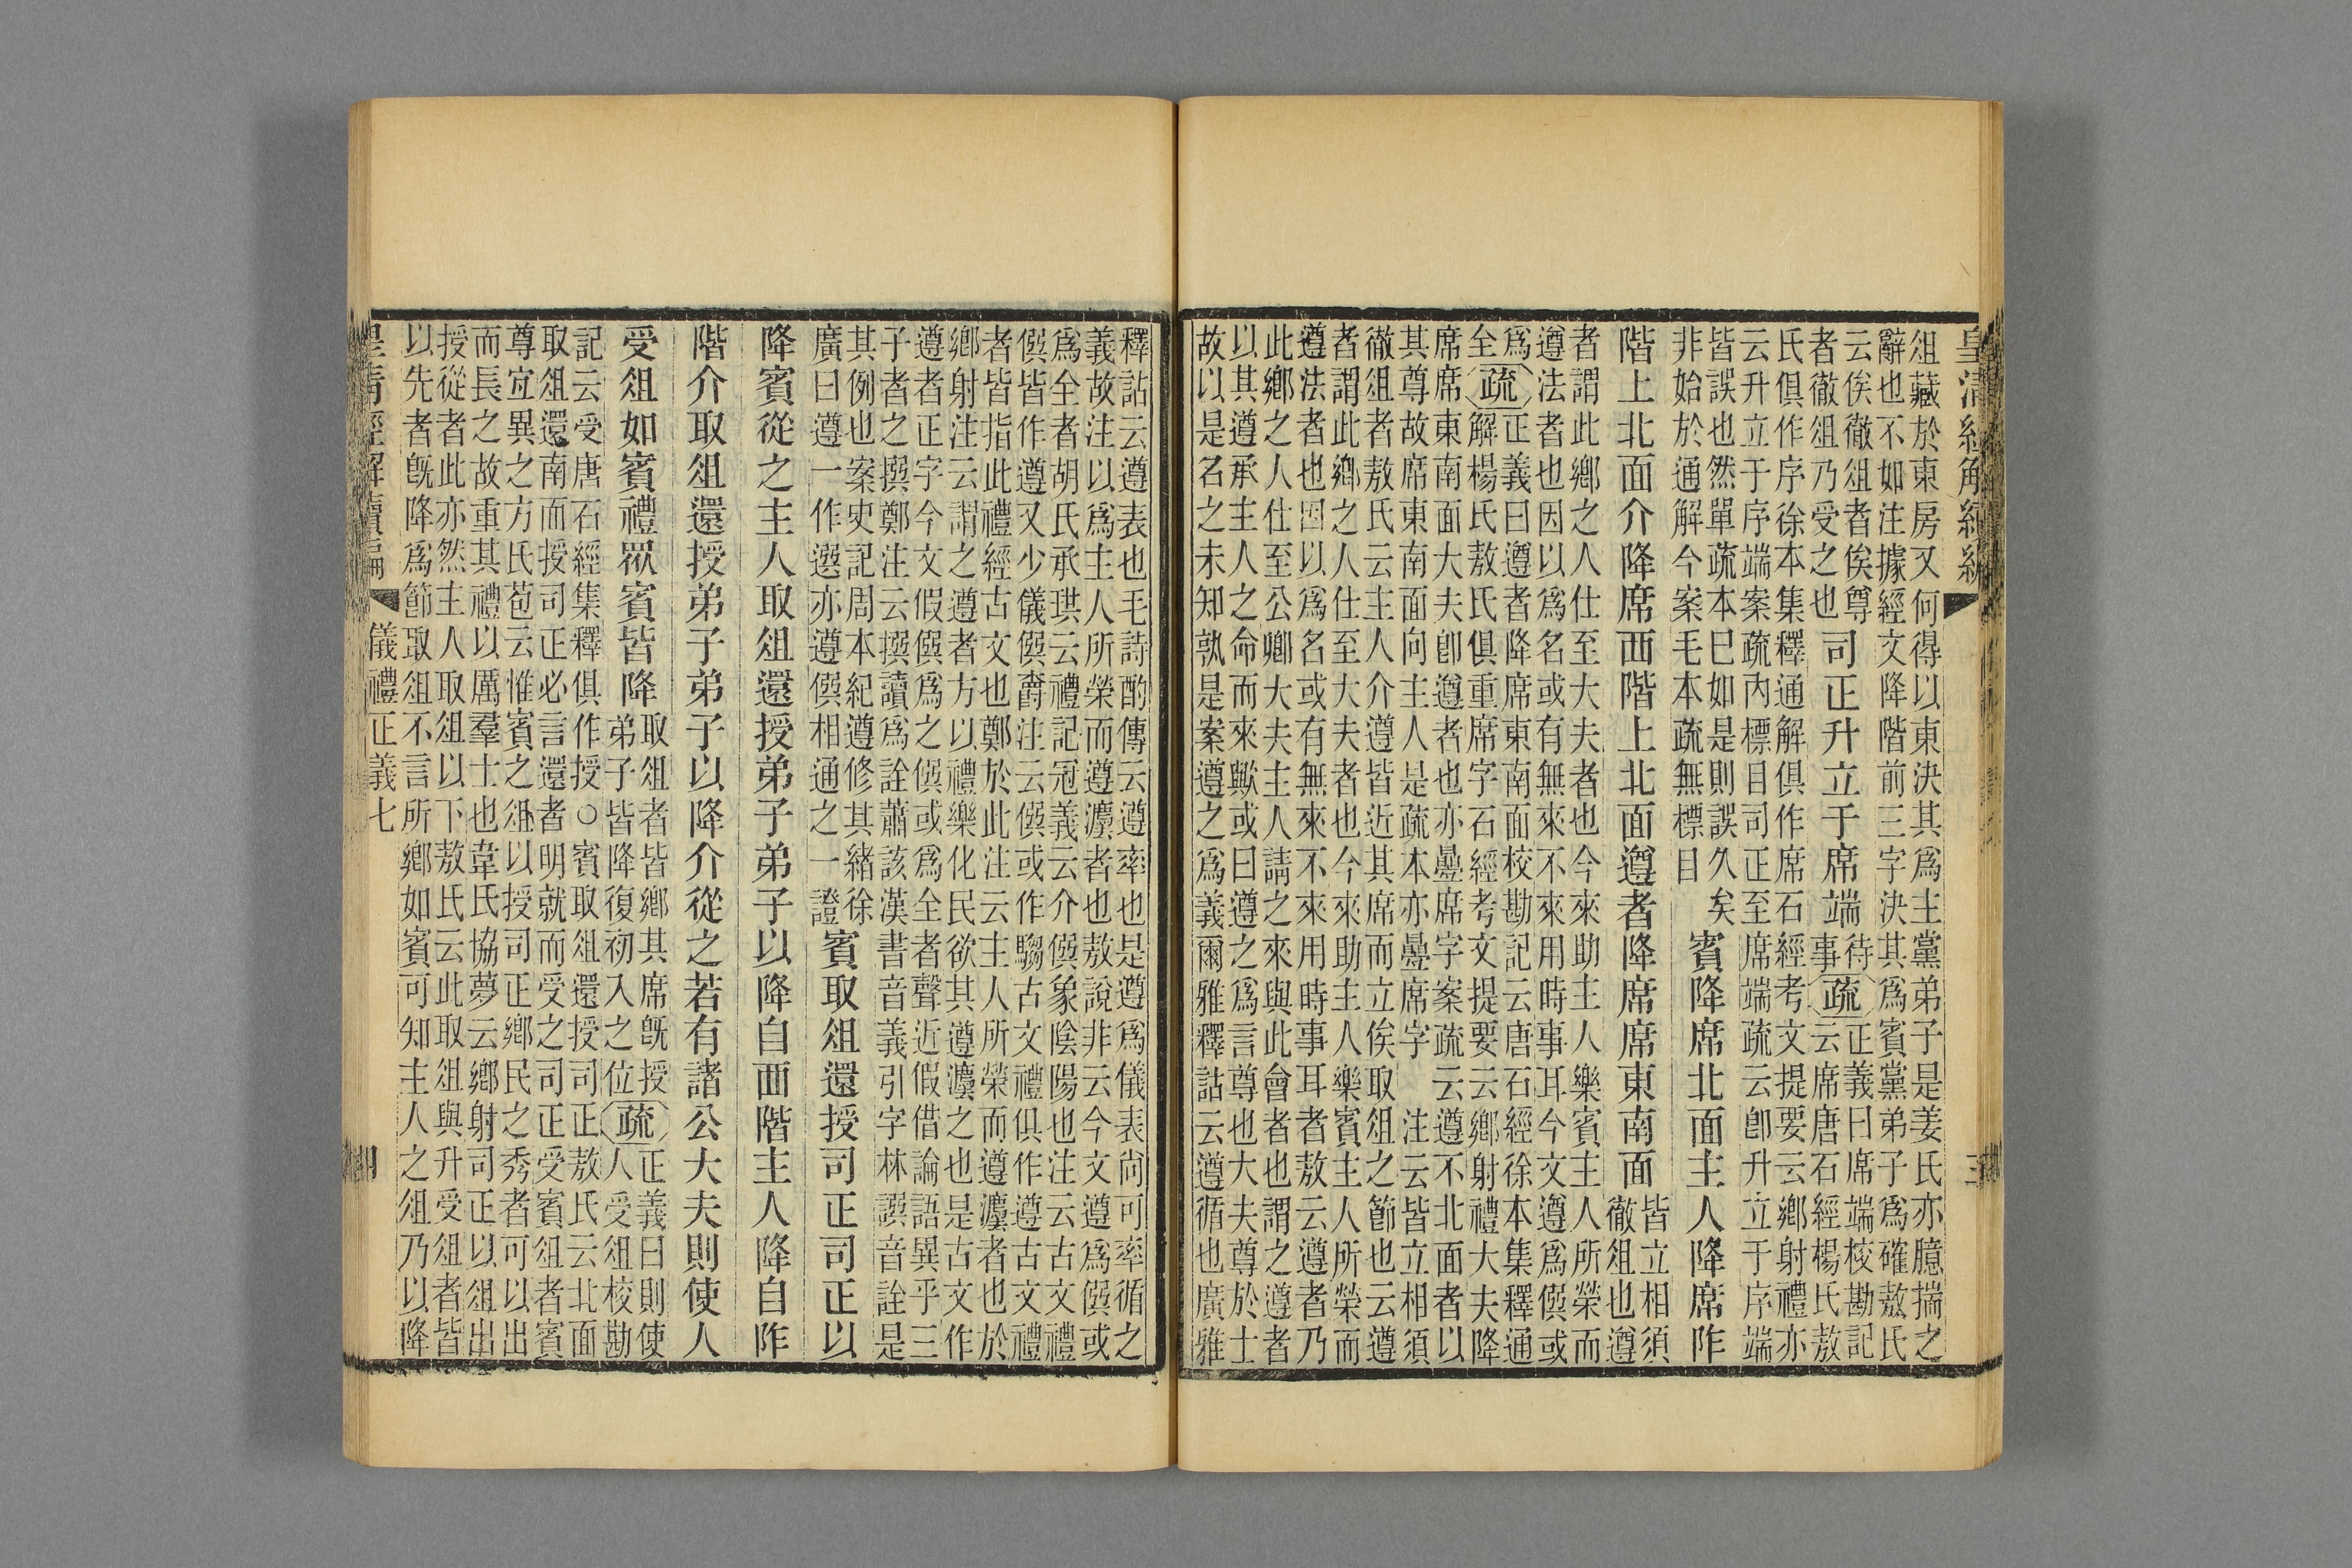 皇清經解續編
俎藏於東房又何得以東決其爲主黨弟子是姜氏亦臆揣之
辭也不如注據經文降階前三字決其爲賓黨弟子爲確敖氏
云俟徹俎者俟尊
者徹俎乃受之也
司正升立于席端
待
事
疏
正義曰席端校勘記
云席唐石經楊氏敖
氏俱作序徐本集釋通解俱作席石經考文提要云鄉射禮亦
云升立于序端案疏內標目司正至席端疏云卽升立于序端
皆誤也然單疏本巳如是則誤久矣
非始於通解今案毛本疏無標目
賓降席北面主人降席阼
階上北面介降席西階上北面遵者降席席東南面
皆立相須
徹俎也遵
者謂此鄉之人仕至大夫者也今來助主人樂賓主人所榮而
遵法者也因以爲名或有無來不來用時事耳今文遵爲僎或
爲全
疏
正義曰遵者降席東南面校勘記云唐石經徐本集釋通
解楊氏敖氏俱重席字石經考文提要云鄉射禮大夫降
席席東南面大夫卽遵者也亦疊席字案疏云遵不北面者以
其尊故席東南面向主人是疏本亦疊席字注云皆立相須
徹俎者敖氏云主人介遵皆近其席而立俟取俎之節也云遵
者謂此鄉之人仕至大夫者也今來助主人樂賓主人所榮而
遵法者也因以爲名或有無來不來用時事耳者敖云遵者乃
此鄉之人仕至公卿大夫主人請之來與此會者也謂之遵者
以其遵承主人之命而來歟或曰遵之爲言尊也大夫尊於士
故以是名之未知孰是案遵之爲義爾雅釋詁云遵循也廣雅
三
釋詁云遵表也毛詩酌傳云遵率也是遵爲儀表尙可率循之
義故注以爲主人所榮而遵灋者也敖說非云今文遵爲僎或
爲全者胡氏承珙云禮記冠義云介僎象陰陽也注云古文禮
僎皆作遵又少儀僎爵注云僎或作騶古文禮俱作遵遵古文禮
者皆指此禮經古文也鄭於此注云主人所榮而遵灋者也於
鄉射注云謂之遵者方以禮樂化民欲其遵灋之也是古文作
遵者正字今文假僎爲之僎或爲全者聲近假借論語異乎三
子者之撰鄭注云撰讀爲詮蕭該漢書音義引字林譔音詮是
其例也案史記周本紀遵修其緒徐
廣曰遵一作選亦遵僎相通之一證
賓取俎還授司正司正以
降賓從之主人取俎還授弟子弟子以降自西階主人降自阼
階介取俎還授弟子弟子以降介從之若有諸公大夫則使人
受俎如賓禮眾賓皆降
取俎者皆鄉其席旣授
弟子皆降復初入之位
疏
正義曰則使
人受俎校勘
記云受唐石經集釋俱作授○賓取俎還授司正敖氏云北面
取俎還南面授司正必言還者明就而受之司正受賓俎者賓
尊宜異之方氏苞云惟賓之俎以授司正鄉民之秀者可以出
而長之故重其禮以厲羣士也韋氏協夢云鄉射司正以俎出
授從者此亦然主人取俎以下敖氏云此取俎與升受俎者皆
以先者旣降爲節取俎不言所鄉如賓可知主人之俎乃以降
皇清經解續編
儀禮正義七
四